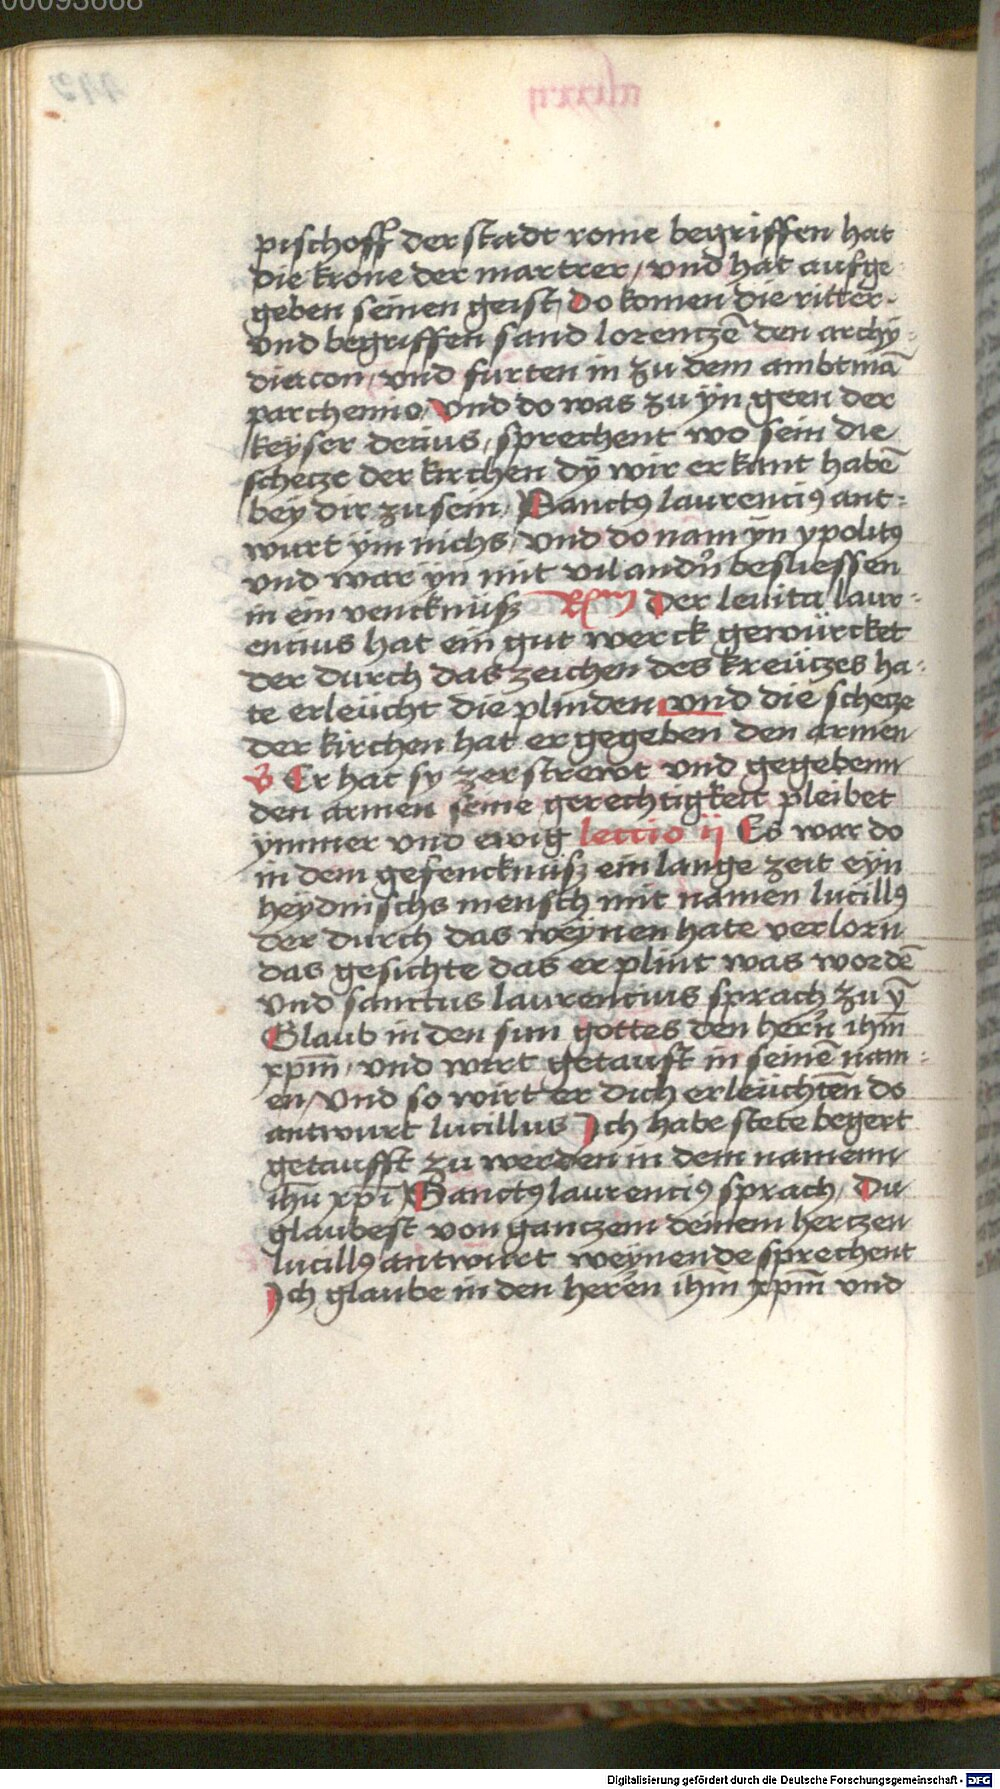 00093668
pischoff der stadt rome begriffen hat
die krone der martrer / vnd hat aufge
geben seinen geist / Do komen die ritter
vnd begriffen sand lorentzē den archy
diacon / vnd furten in zu dem ambtmā
parchemio / Vnd do was zu ÿn geen der
keyser decius / sprechent wo sein die
schecze der kirchen dÿ wir erkant habē
bey dir zu sein / Sanctꝰ laurenciꝰ ant
wurt ÿm nichs / vnd do nam ÿn ypolitꝰ
vnd war ÿn mit vil andn̄ besliessen
in ein vencknüsz Rm̄ Der leuita laur
encius hat ein gut werck gewürcket
der durch das zeichen des kreützes ha
te erleücht die plinden vnd die schecze
der kirchen hat er gegeben den armen
V Er hat sy zerstrewt vnd gegebenn
den armen seine gerechtigkeit pleibet
ymmer vnd ewig lectio ij Es war do
in dem gefencknüsz ein lange zeit eyn
heydnischs mensch mit namen lucillꝰ
der durch das weynen hate verlorn
das gesichte das er plint was wordē
vnd sanctus laurencius sprach zu ȳ
Glaub in den sun gottes den hern̄ ihm̄
xpm̄ / vnd wirt getauft in seinē nam
en / Vnd so wirt er dich erleüchtēn do
antwurt lucillus Ich habe stete begert
getaufft zu werden in dem namenn
ihū xpī Sanctꝰ laurenciꝰ sprach / Du
glaubest von gantzem deinem hertzen
lucillꝰ antwurt weynende sprechent
Ich glaube in den herēn ihm̄ xpm̄ vnd
Digitalisierung gefördert durch die Deutsche Forschungsgemeinschaft - DFG